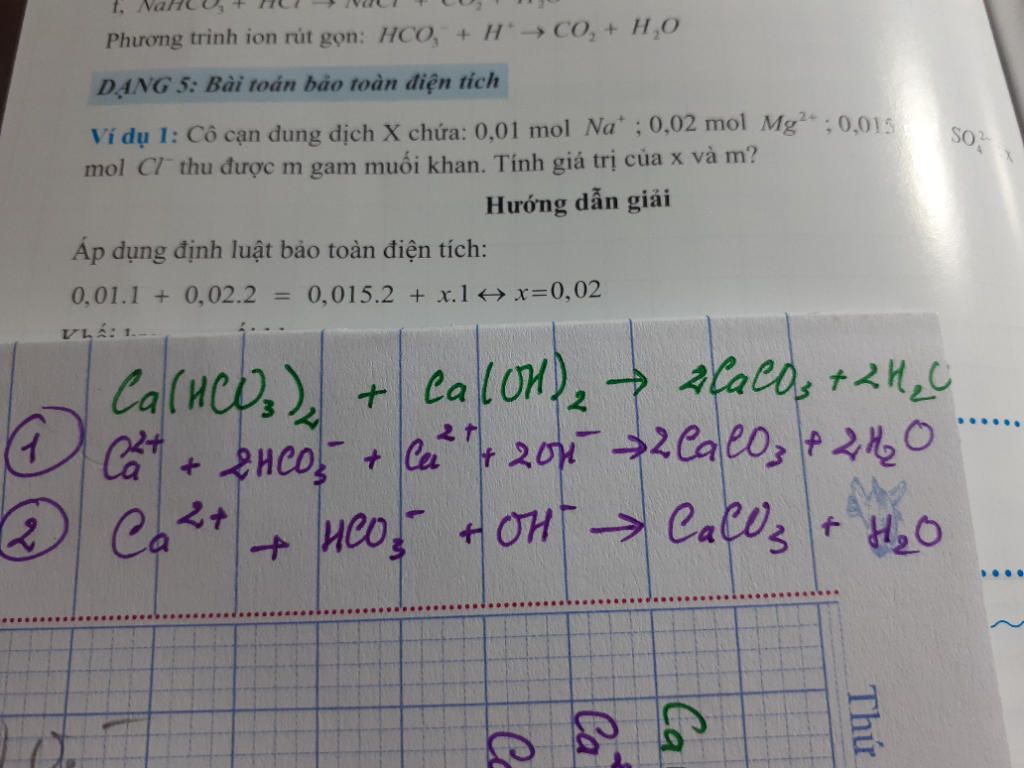 f, NaHCO₃ + HCl → NaCl + CO₂ + H₂O
Phương trình ion rút gọn: HCO₃⁻ + H⁺ → CO₂ + H₂O
DẠNG 5: Bài toán bảo toàn điện tích
Ví dụ 1: Cô cạn dung dịch X chứa: 0,01 mol Na⁺ ; 0,02 mol Mg²⁺ ; 0,015 SO₄²⁻ x
mol Cl⁻ thu được m gam muối khan. Tính giá trị của x và m?
Hướng dẫn giải
Áp dụng định luật bảo toàn điện tích:
0,01.1 + 0,02.2 = 0,015.2 + x.1 ↔ x=0,02
Ca(HCO₃)₂ + Ca(OH)₂ → 2CaCO₃ + 2H₂O
1 Ca²⁺ + 2HCO₃⁻ + Ca²⁺ + 2OH⁻ → 2CaCO₃ + 2H₂O
2 Ca²⁺ + HCO₃⁻ + OH⁻ → CaCO₃ + H₂O
Thứ
Ca
Ca